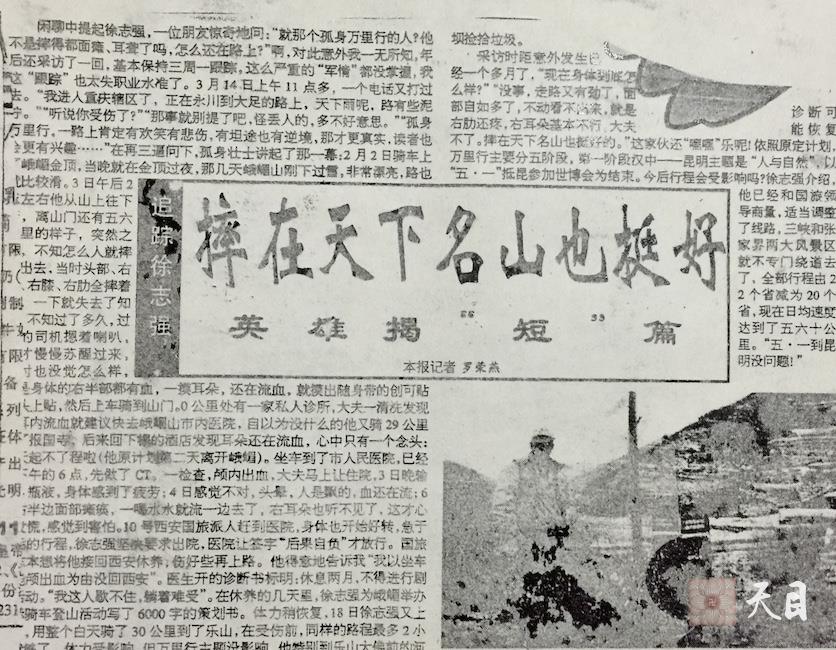 闲聊中提起徐志强，一位朋友惊奇地问：“就那个孤身万里行的人？他
不是摔得都面瘫、耳聋了吗，怎么还在路上？”啊，对此意外我一无所知，年
后还采访了一回，基本保持三周一跟踪，这么严重的“军情”都没掌握，我
这“跟踪”也太失职业水准了。3月14日上午11点多，一个电话又打过
去。“我进入重庆辖区了，正在永川到大足的路上，天下雨呢，路有些泥
泞。”“听说你受伤了？”“那事就别提了吧，怪丢人的，多不好意思。”“孤身
万里行，一路上肯定有欢笑有悲伤，有坦途也有逆境，那才更真实，读者也
会更有兴趣……”在再三逼问下，孤身壮士讲起了那一幕：2月2日骑车上
峨嵋金顶，当晚就在金顶过夜，那几天峨嵋山刚下过雪，非常漂亮，路也
比较滑。3日午后2
左右他从山上往下
，离山门还有五六
里的样子，突然之
，不知怎么人就摔
出去，当时头部、右
、右膝、右肋全摔着
，一下就失去了知
不知过了多久，过
的司机摁着喇叭，
才慢慢苏醒过来，
时也没觉怎么样，
是身体的右半部都有血，一摸耳朵，还在流血，就摸出随身带的创可贴
上贴，然后上车骑到山门。0公里处有一家私人诊所，大夫一清洗发现
耳内流血就建议快去峨嵋山市内医院，自以为没什么的他又骑29公里
报国寺，后来回下榻的酒店发现耳朵还在流血，心中只有一个念头：
起不了程啦（他原计划第二天离开峨嵋）。坐车到了市人民医院，已经
午的6点，先做了CT。一检查，颅内出血，大夫马上让住院，3日晚输
瓶液，身体感到了疲劳；4日感觉不对，头晕，人是飘的，血还在流；6
半边面部瘫痪，一喝水水就流一边去了，右耳朵也听不见了，这才心
慌，感觉到害怕。10号西安国旅派人赶到医院，身体也开始好转，急于
的行程，徐志强坚决要求出院，医院让签字“后果自负”才放行。国旅
本想将他接回西安休养，伤好些再上路。他得意地告诉我“我以坐车
颅出血为由没回西安”。医生开的诊断书标明：休息两月，不得进行剧
动。“我这人歇不住，躺着难受”。在休养的几天里，徐志强为峨嵋举办
骑车登山活动写了6000字的策划书。体力稍恢复，18日徐志强又上
，用整个白天骑了30公里到了乐山，在受伤前，同样的路程最多2小
追踪徐志强
摔在天下名山也挺好
英雄揭“短”篇
本报记者 罗荣燕
坝捡拾垃圾。
采访时距意外发生已
经一个多月了，“现在身体到底怎
么样？”“没事，走路又有劲了，面
部自如多了，不动看不出来，就是
右肋还疼，右耳朵基本不行，大夫
诊断可
能恢复
不了。摔在天下名山也挺好的。”这家伙还“嘿嘿”乐呢！依照原定计划，
万里行主要分五阶段，第一阶段汉中——昆明主题是“人与自然”，以
“五·一”抵昆参加世博会为结束。今后行程会受影响吗？徐志强介绍，
他已经和国旅领
导商量，适当调整
了线路，三峡和张
家界两大风景区
就不专门绕道去
了，全部行程由2
2个省减为20个
省，现在日均速度
达到了五六十公
里。“五·一到昆
明没问题！”
天目